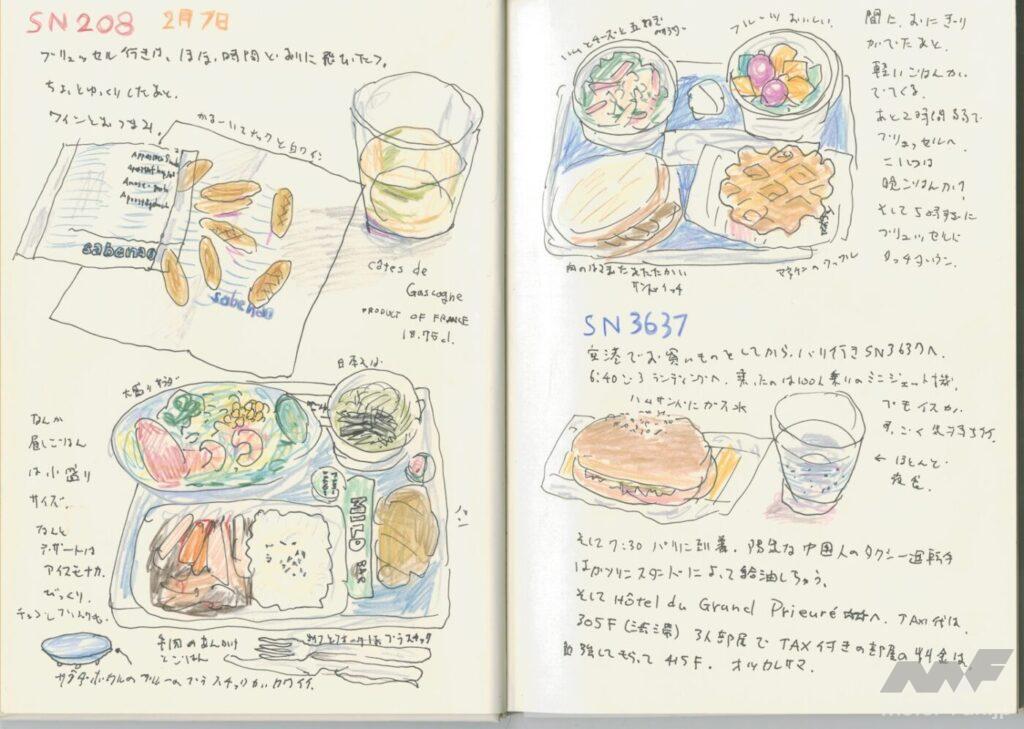 SN208 2月7日
ブリュッセル行きは、ほぼ時間どおりに飛びたつ。
ちょっとゆっくりしたあと、
ワインとおつまみ。
かるーいスナックと白ワイン
sabena
sabena
côtes de
Gascogne
PRODUCT OF FRANCE
18.75cl.
大盛りサラダ
日本そば
なんか
昼ごはん
は小盛り
サイズ。
なんと
デザートは
アイスモナカ。
びっくり。
チョコレート
MILD
BAR
パン
牛肉のあんかけ
とごはん
ナイフとフォークはプラスチック
サラダボウルのブルーのプラスチックがカワイイ。
ハムとチーズと玉ねぎ
フルーツおいしい。
間に、おにぎり
がでたあと、
軽いごはんが
でてくる。
あと2時間弱で
ブリュッセルへ。
こいつは
晩ごはんか?
そして5時すぎに
ブリュッセルに
タッチダウン。
肉のはさまったあたたかい
サンドイッチ
マネケンのワッフル
SN3637
空港でお買いものをしてから、パリ行きSN3637へ。
6:40ごろランディングへ。乗ったのは100人乗りのミニジェット機。
ハムサンドにガス水
でもイスが、
すっごく気持ちいい。
← ほとんど
夜食。
そして7:30 パリに到着。陽気な中国人のタクシー運転手
はガソリンスタンドによって給油しちゃう。
そしてHôtel du Grand Prieuré へ。TAXI代は、
305F(渋滞) 3人部屋でTAX付きの部屋の料金は、
勉強してもらって 415F。オツカレサマ。